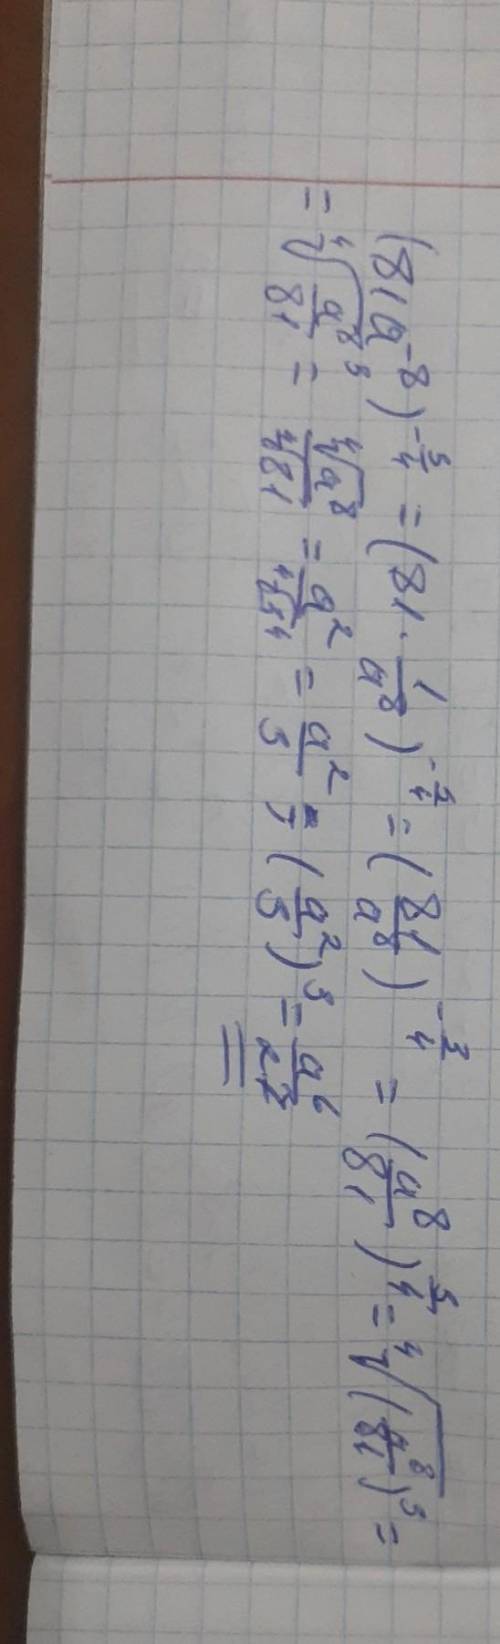 (81a⁻⁸)^(-3/4) = (81 · 1/a⁸)^(-3/4) = (81/a⁸)^(-3/4) = (a⁸/81)^(3/4) = ⁴√(a⁸/81)³ =
= ⁴√(a⁸/81)³ = ⁴√a⁸/⁴√81 = a²/⁴√3⁴ = a²/3 = (a²/3)³ = a⁶/27